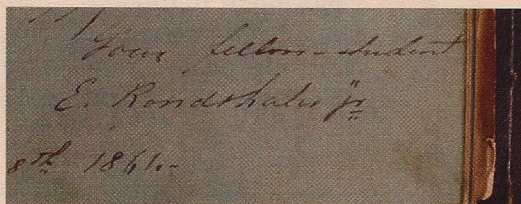 Your fellow-student
E. Rondthaler Jr
8th 1861.-